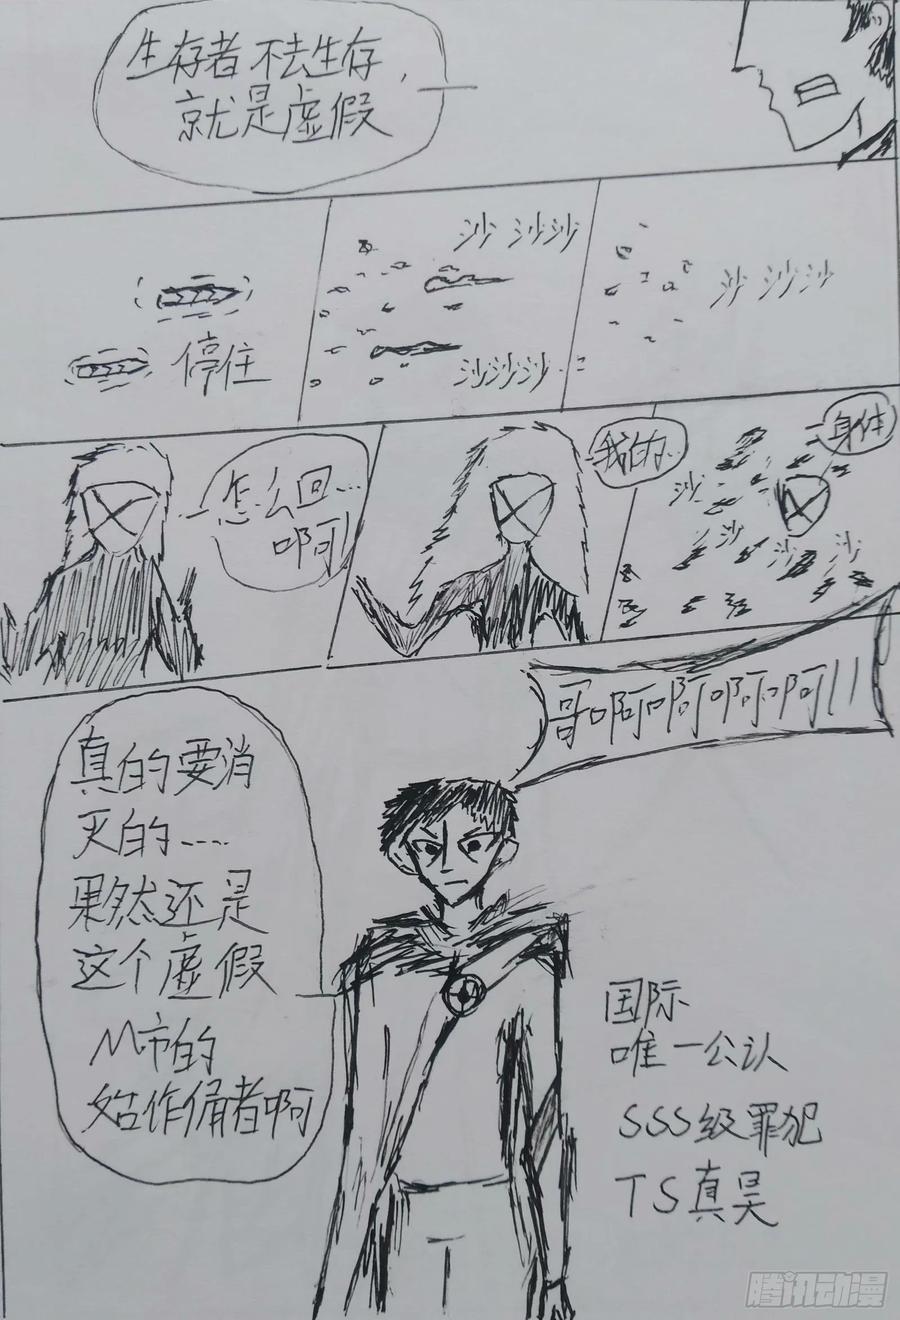 生存者不去生存，
就是虚假
停住
沙沙沙
沙沙沙
沙沙沙
怎么回…
啊!
我的…
身体
沙
沙
沙
沙
哥啊啊啊啊!!
真的要消
灭的……
果然还是
这个虚假
M市的
始作俑者啊
国际
唯一公认
SSS级罪犯
TS真昊
腾讯动漫